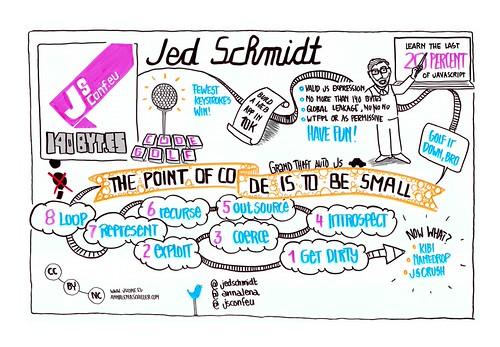 Jed Schmidt
JS
Conf.eu
140BYTES
FEWEST
KEYSTROKES
WIN!
CODE
GOLF
BUILD
A WEB
APP IN
10K
VALID JS EXPRESSION
NO MORE THAN 140 BYTES
GLOBAL LEAKAGE, NO NO NO
WTFPL OR AS PERMISSIVE
HAVE FUN!
LEARN THE LAST
20 PERCENT
OF JAVASCRIPT
GOLF IT
DOWN, BRO
GRAND THEFT AUTO JS
THE POINT OF CODE IS TO BE SMALL
8 LOOP
7 REPRESENT
6 RECURSE
5 OUTSOURCE
4 INTROSPECT
3 COERCE
2 EXPLOIT
1 GET DIRTY
NOW WHAT?
KIBI
NAMEDROP
JSCRUSH
CC
BY
NC
@jedschmidt
@annalena
@jsconfeu